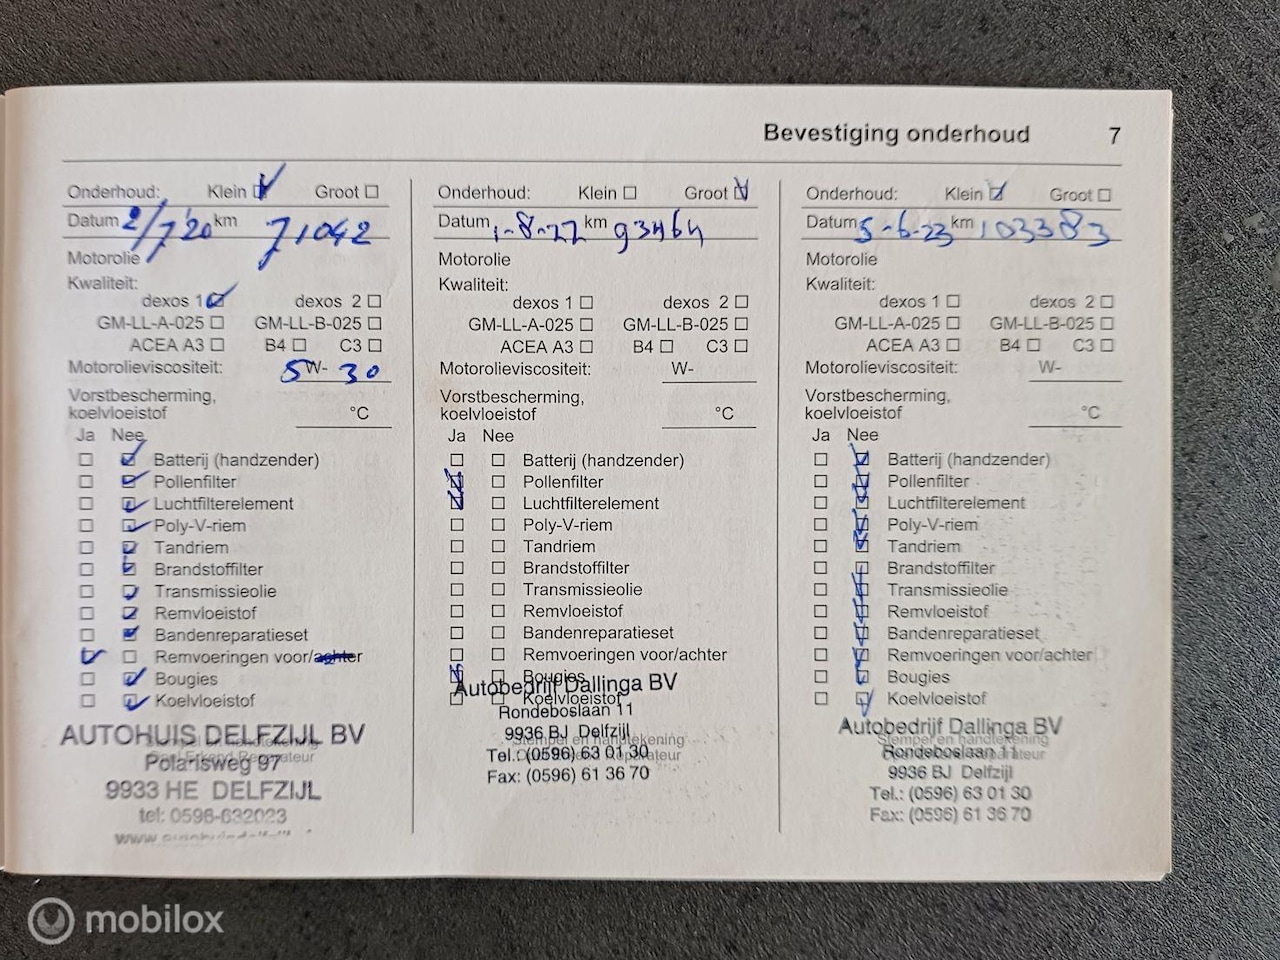 Bevestiging onderhoud 7
Onderhoud: Klein Groot
Datum 2/7'20 km 71042
Motorolie
Kwaliteit:
dexos 1 dexos 2
GM-LL-A-025 GM-LL-B-025
ACEA A3 B4 C3
Motorolieviscositeit: 5W-30
Vorstbescherming,
koelvloeistof °C
Ja Nee
Batterij (handzender)
Pollenfilter
Luchtfilterelement
Poly-V-riem
Tandriem
Brandstoffilter
Transmissieolie
Remvloeistof
Bandenreparatieset
Remvoeringen voor/achter
Bougies
Koelvloeistof
AUTOHUIS DELFZIJL BV
Polarisweg 97
9933 HE DELFZIJL
tel: 0596-632023
Onderhoud: Klein Groot
Datum 1-8-22 km 93464
Motorolie
Kwaliteit:
dexos 1 dexos 2
GM-LL-A-025 GM-LL-B-025
ACEA A3 B4 C3
Motorolieviscositeit: W-
Vorstbescherming,
koelvloeistof °C
Ja Nee
Batterij (handzender)
Pollenfilter
Luchtfilterelement
Poly-V-riem
Tandriem
Brandstoffilter
Transmissieolie
Remvloeistof
Bandenreparatieset
Remvoeringen voor/achter
Bougies
Koelvloeistof
Autobedrijf Dallinga BV
Rondeboslaan 11
9936 BJ Delfzijl
Stempel en handtekening
Tel.: (0596) 63 01 30
Fax: (0596) 61 36 70
Onderhoud: Klein Groot
Datum 5-6-23 km 103383
Motorolie
Kwaliteit:
dexos 1 dexos 2
GM-LL-A-025 GM-LL-B-025
ACEA A3 B4 C3
Motorolieviscositeit: W-
Vorstbescherming,
koelvloeistof °C
Ja Nee
Batterij (handzender)
Pollenfilter
Luchtfilterelement
Poly-V-riem
Tandriem
Brandstoffilter
Transmissieolie
Remvloeistof
Bandenreparatieset
Remvoeringen voor/achter
Bougies
Koelvloeistof
Autobedrijf Dallinga BV
Stempel en handtekening
Rondeboslaan 11
9936 BJ Delfzijl
Tel.: (0596) 63 01 30
Fax: (0596) 61 36 70
mobilox